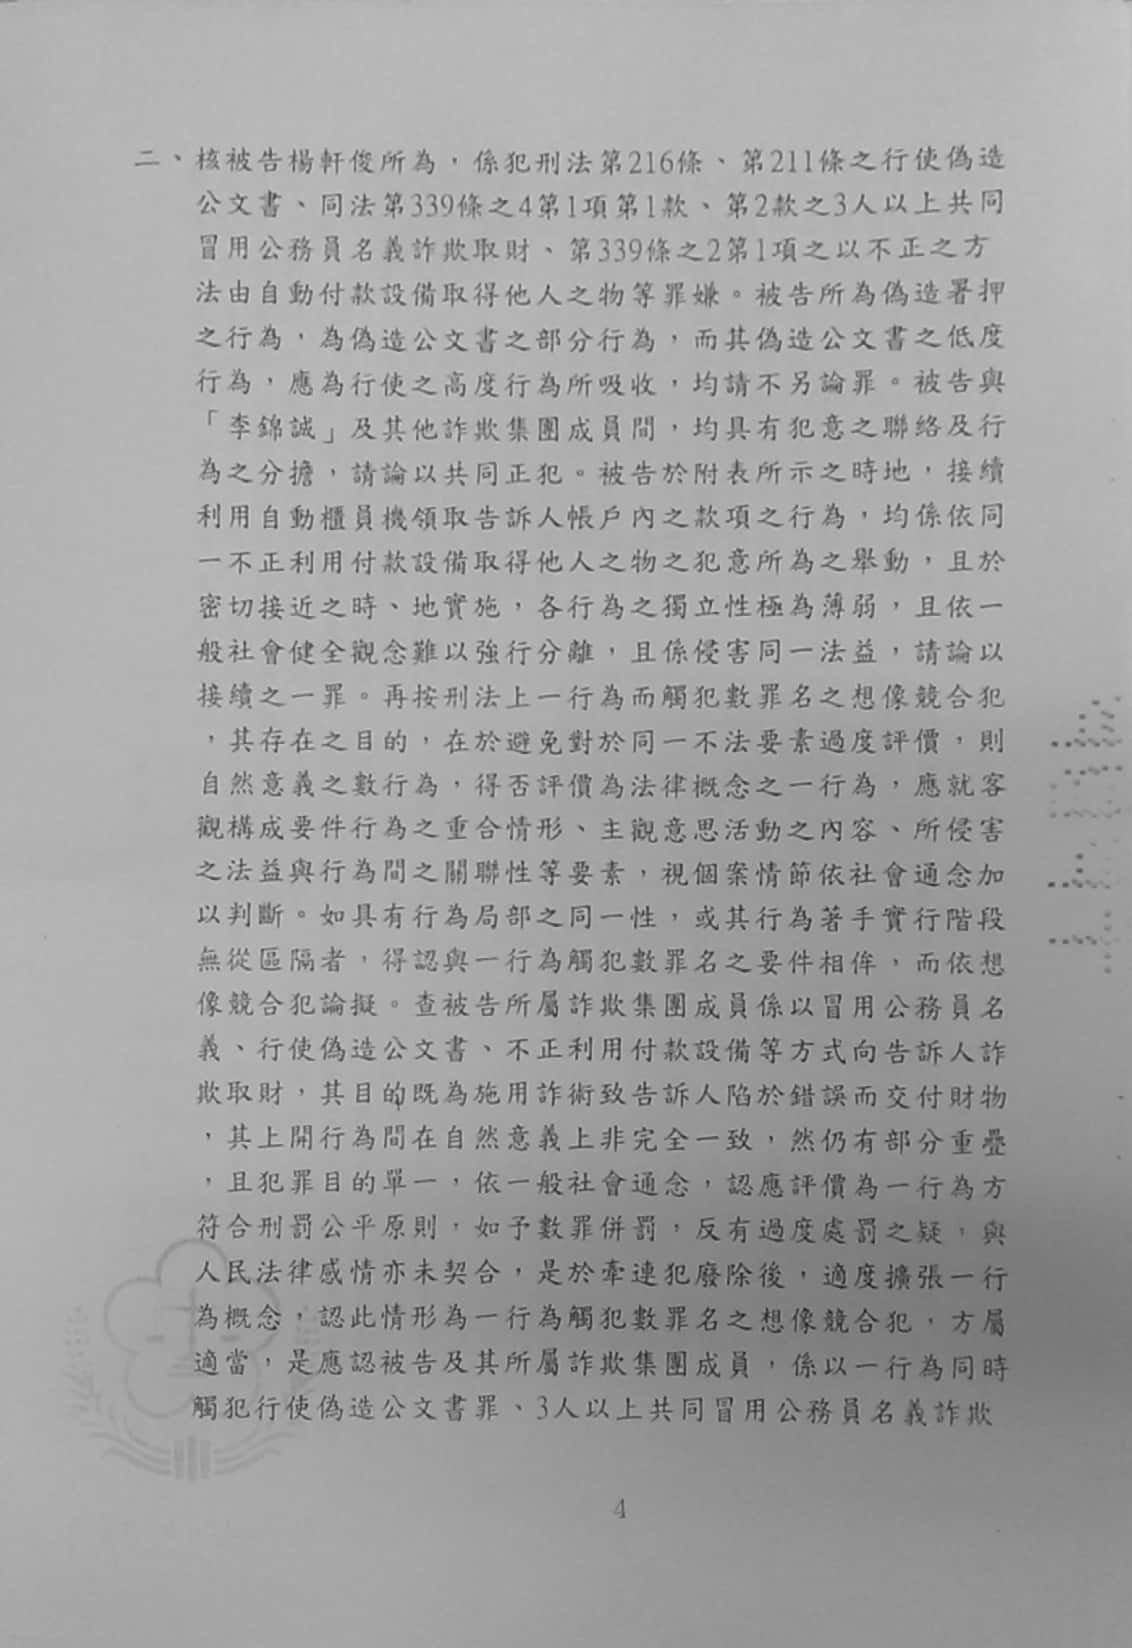 二、核被告楊軒俊所為，係犯刑法第216條、第211條之行使偽造
公文書、同法第339條之4第1項第1款、第2款之3人以上共同
冒用公務員名義詐欺取財、第339條之2第1項之以不正之方
法由自動付款設備取得他人之物等罪嫌。被告所為偽造署押
之行為，為偽造公文書之部分行為，而其偽造公文書之低度
行為，應為行使之高度行為所吸收，均請不另論罪。被告與
「李錦誠」及其他詐欺集團成員間，均具有犯意之聯絡及行
為之分擔，請論以共同正犯。被告於附表所示之時地，接續
利用自動櫃員機領取告訴人帳戶內之款項之行為，均係依同
一不正利用付款設備取得他人之物之犯意所為之舉動，且於
密切接近之時、地實施，各行為之獨立性極為薄弱，且依一
般社會健全觀念難以強行分離，且係侵害同一法益，請論以
接續之一罪。再按刑法上一行為而觸犯數罪名之想像競合犯
，其存在之目的，在於避免對於同一不法要素過度評價，則
自然意義之數行為，得否評價為法律概念之一行為，應就客
觀構成要件行為之重合情形、主觀意思活動之內容、所侵害
之法益與行為間之關聯性等要素，視個案情節依社會通念加
以判斷。如具有行為局部之同一性，或其行為著手實行階段
無從區隔者，得認與一行為觸犯數罪名之要件相侔，而依想
像競合犯論擬。查被告所屬詐欺集團成員係以冒用公務員名
義、行使偽造公文書、不正利用付款設備等方式向告訴人詐
欺取財，其目的既為施用詐術致告訴人陷於錯誤而交付財物
，其上開行為間在自然意義上非完全一致，然仍有部分重疊
，且犯罪目的單一，依一般社會通念，認應評價為一行為方
符合刑罰公平原則，如予數罪併罰，反有過度處罰之疑，與
人民法律感情亦未契合，是於牽連犯廢除後，適度擴張一行
為概念，認此情形為一行為觸犯數罪名之想像競合犯，方屬
適當，是應認被告及其所屬詐欺集團成員，係以一行為同時
觸犯行使偽造公文書罪、3人以上共同冒用公務員名義詐欺
4